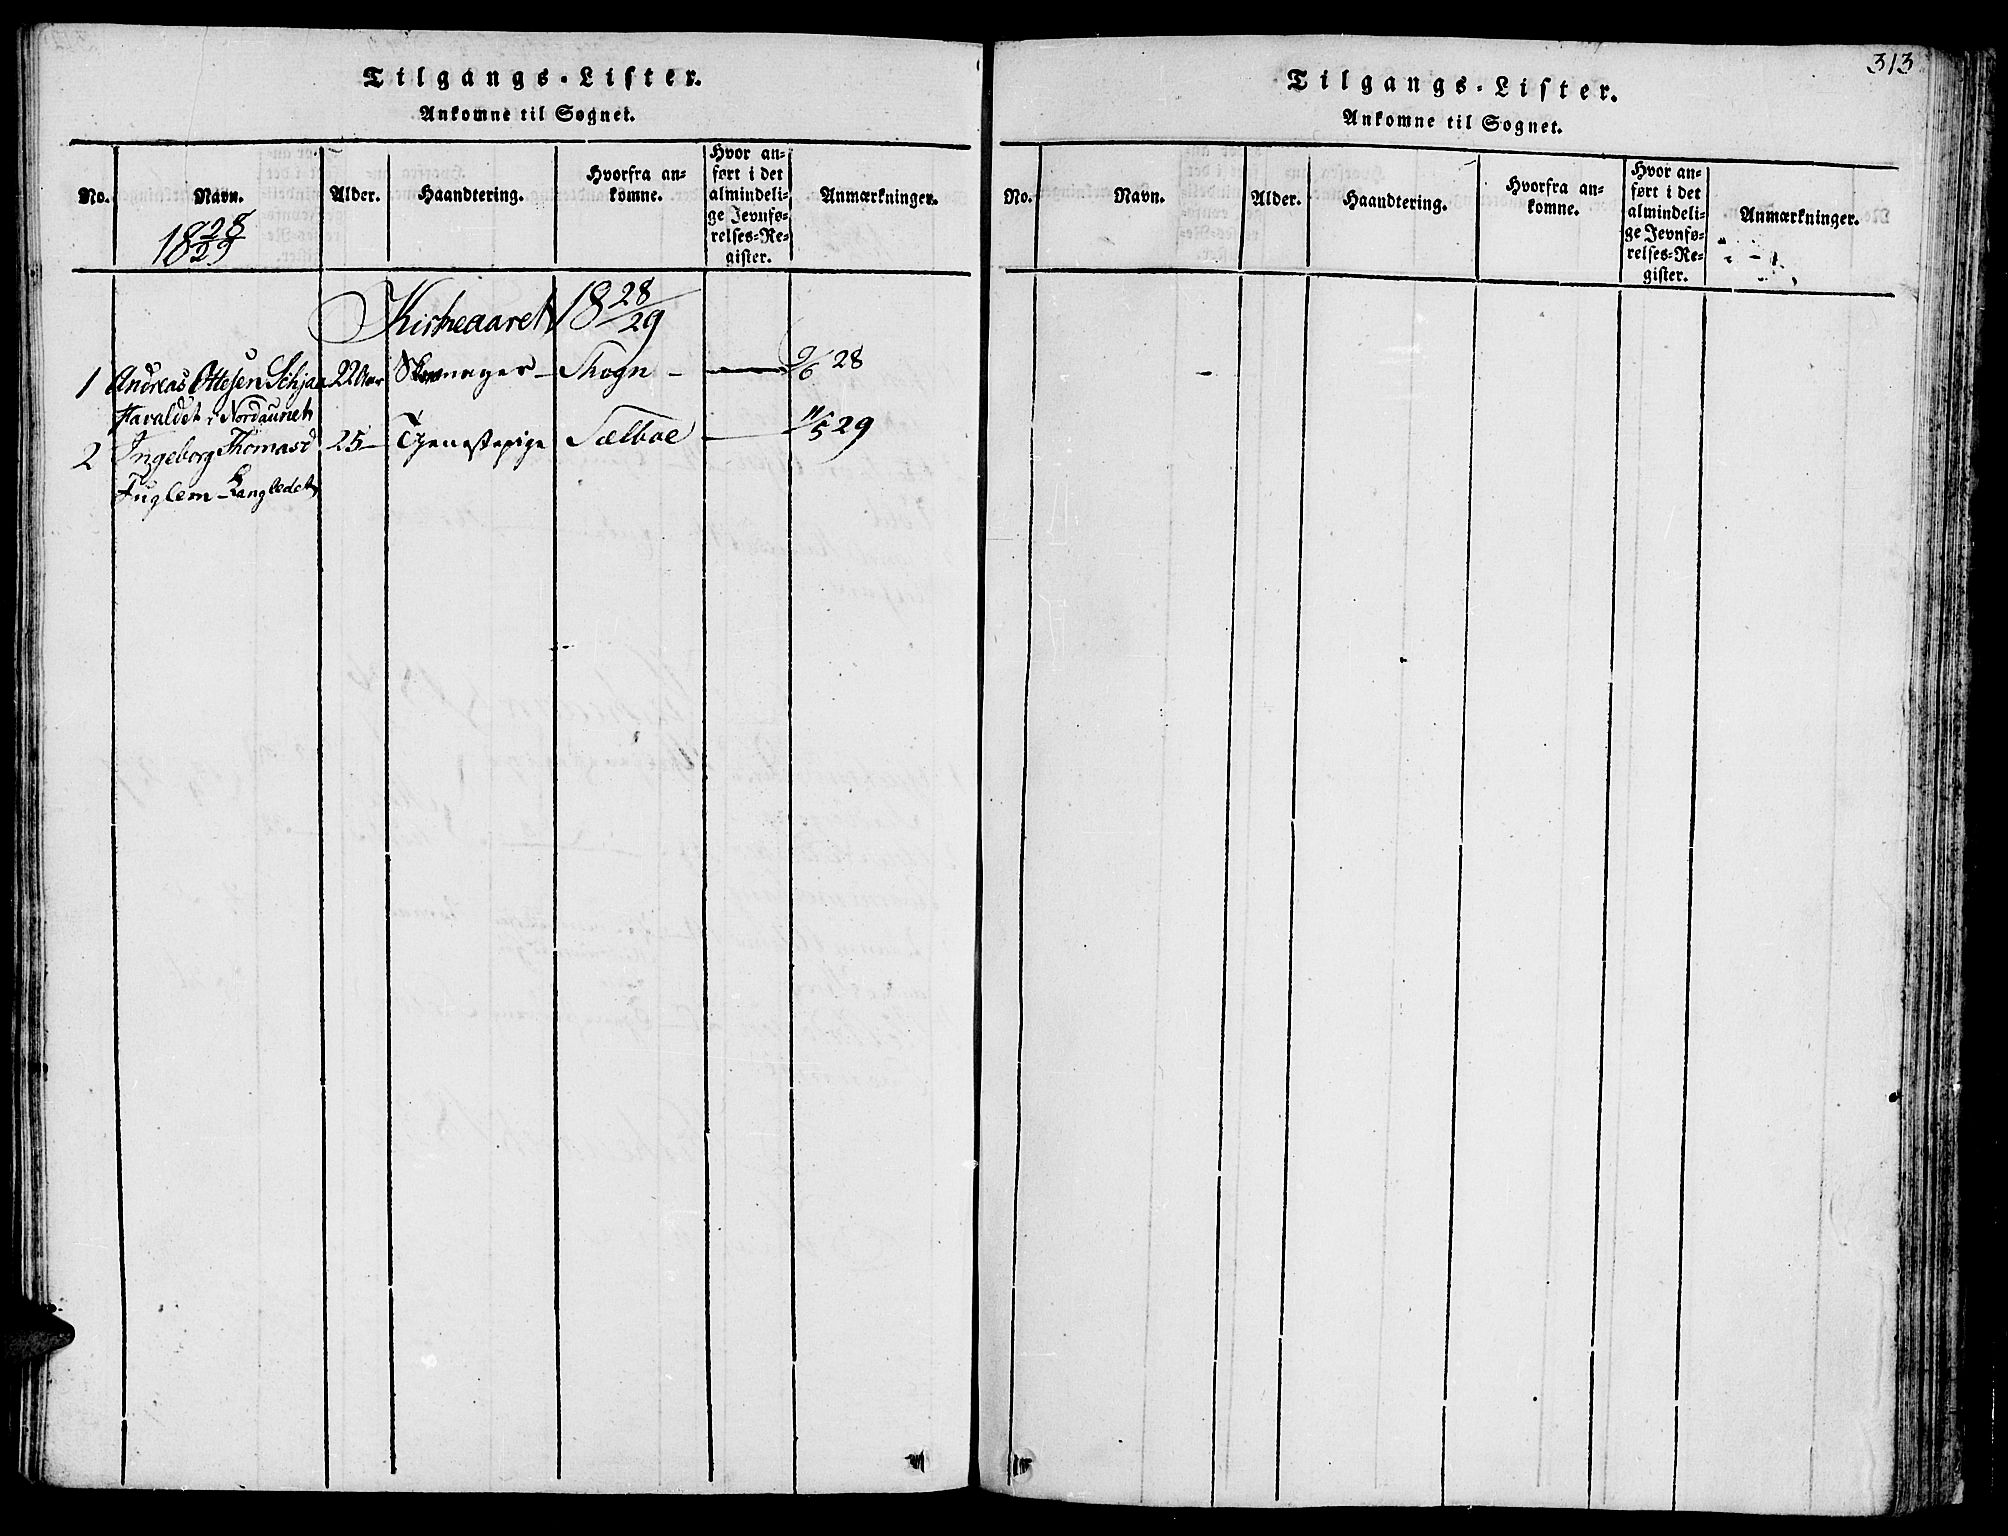 Tilgangs-Lister.
Ankomne til Sognet.
No.
Navn.
18 28/29
Alder.
Haandtering.
Hvorfra an-
komne.
Hvor an-
ført i det
almindeli-
ge Jevnfø-
relses-Re-
gister.
Anmærkninger.
Kirkeaaret 18 28/29
1 Andreas Ottesen Schjaa 22 Aar Skomager - Skogn - 9/6 28
Haraldet, Nordaunet
2 Ingeborg Thomasd 25 - Tjenestepige Sælboe 11/5 29
Fuglem - Langledet
313
Tilgangs-Lister.
Ankomne til Sognet.
No.
Navn.
Alder.
Haandtering.
Hvorfra an-
komne.
Hvor an-
ført i det
almindeli-
ge Jevnfø-
relses-Re-
gister.
Anmærkninger.